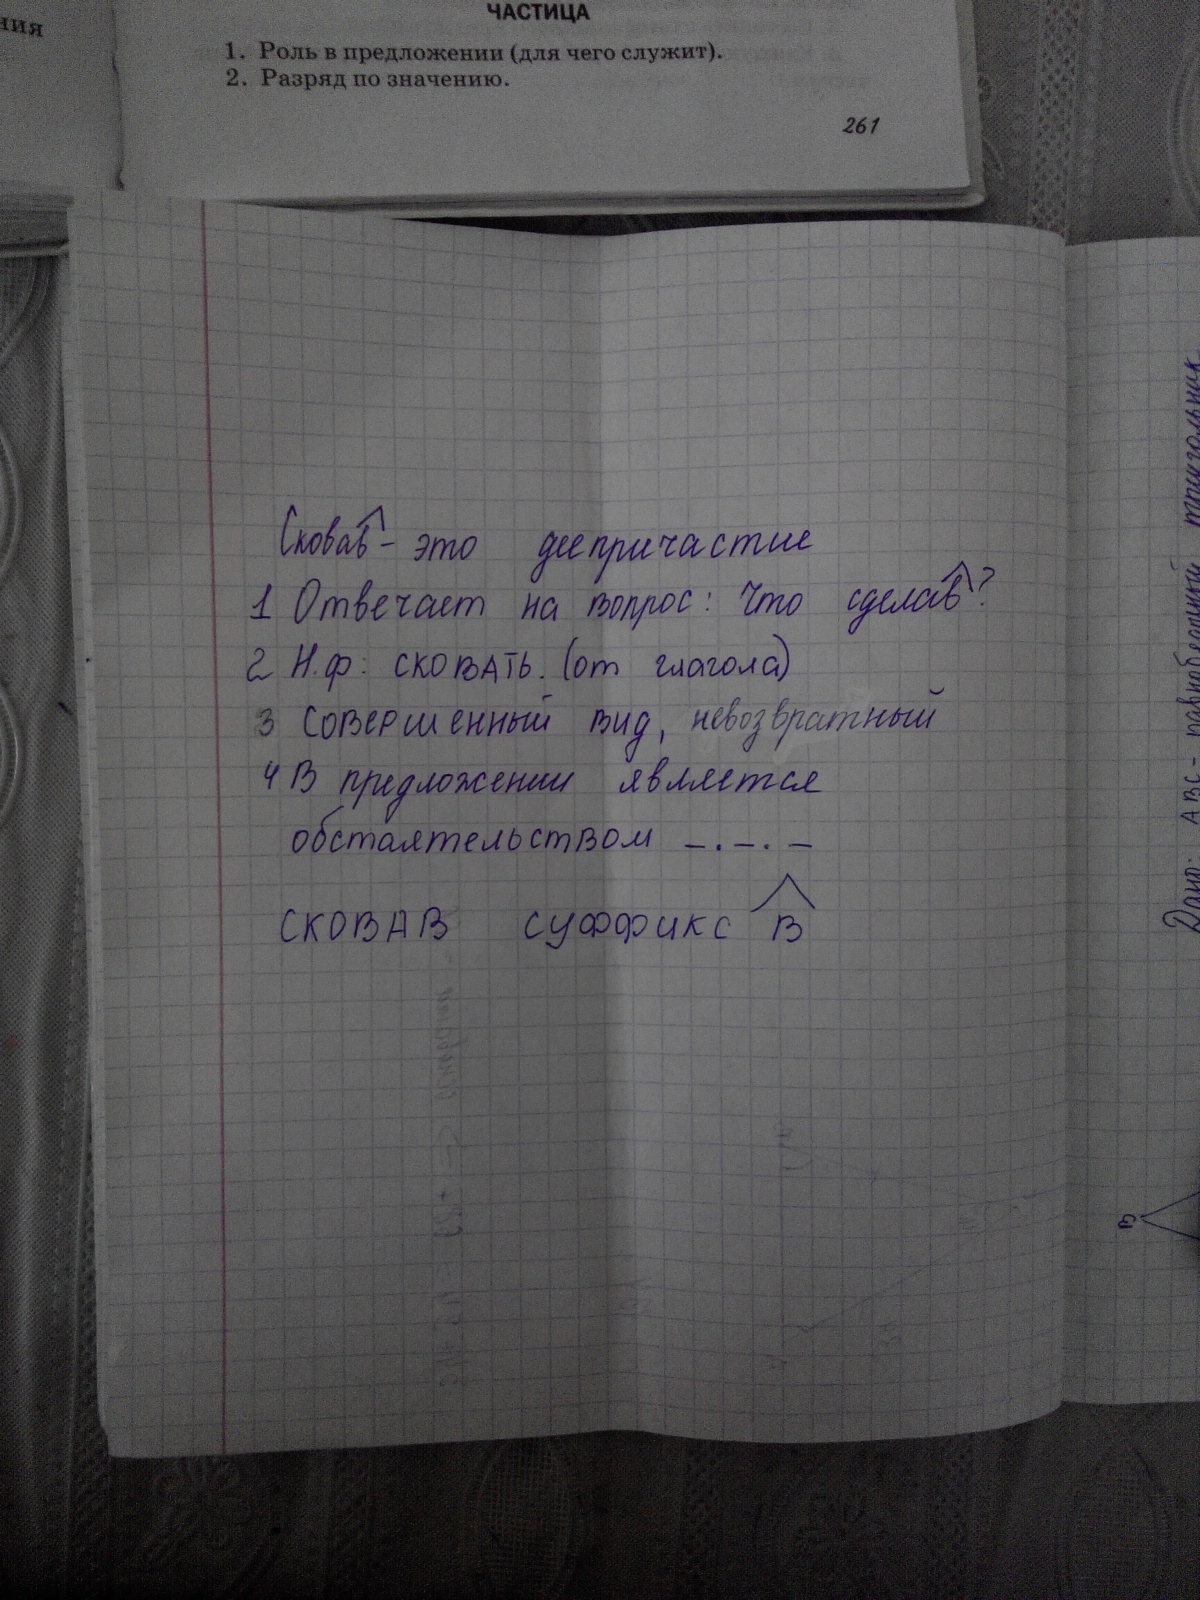 ния
ЧАСТИЦА
1. Роль в предложении (для чего служит).
2. Разряд по значению.
261
Сковав - это деепричастие
1 Отвечает на вопрос: Что сделав?
2 Н.ф: сковать. (от глагола)
3 Совершенный вид, невозвратный
4 В предложении является
обстаятельством _._._
сковав суффикс в
Дано: ABC - равнобедренный триугольник